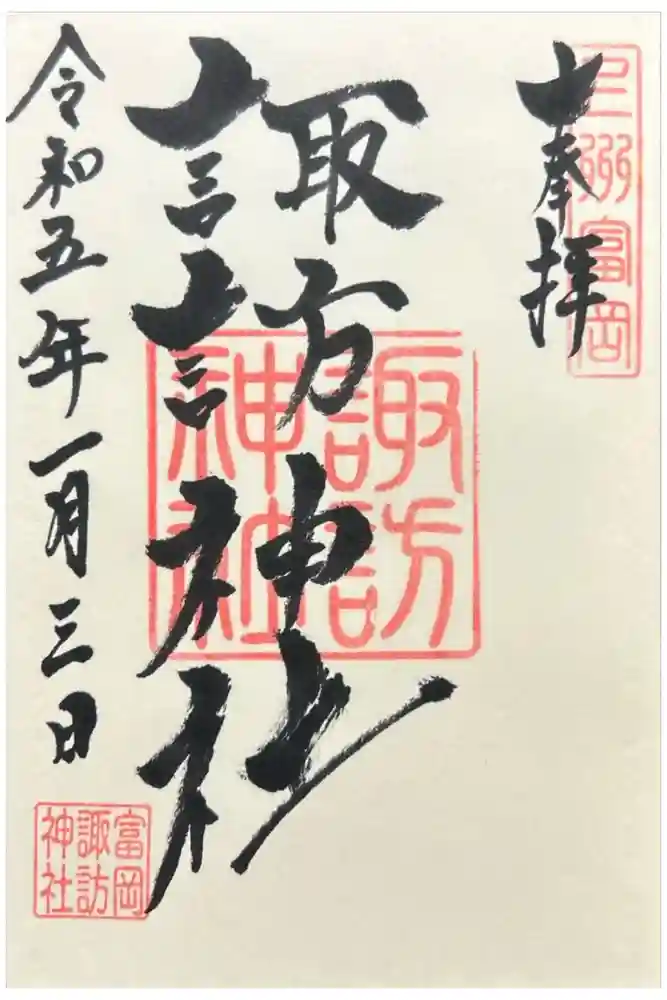 奉拝
上州富岡
諏訪神社
諏訪
神社
令和五年一月三日
富岡
諏訪
神社